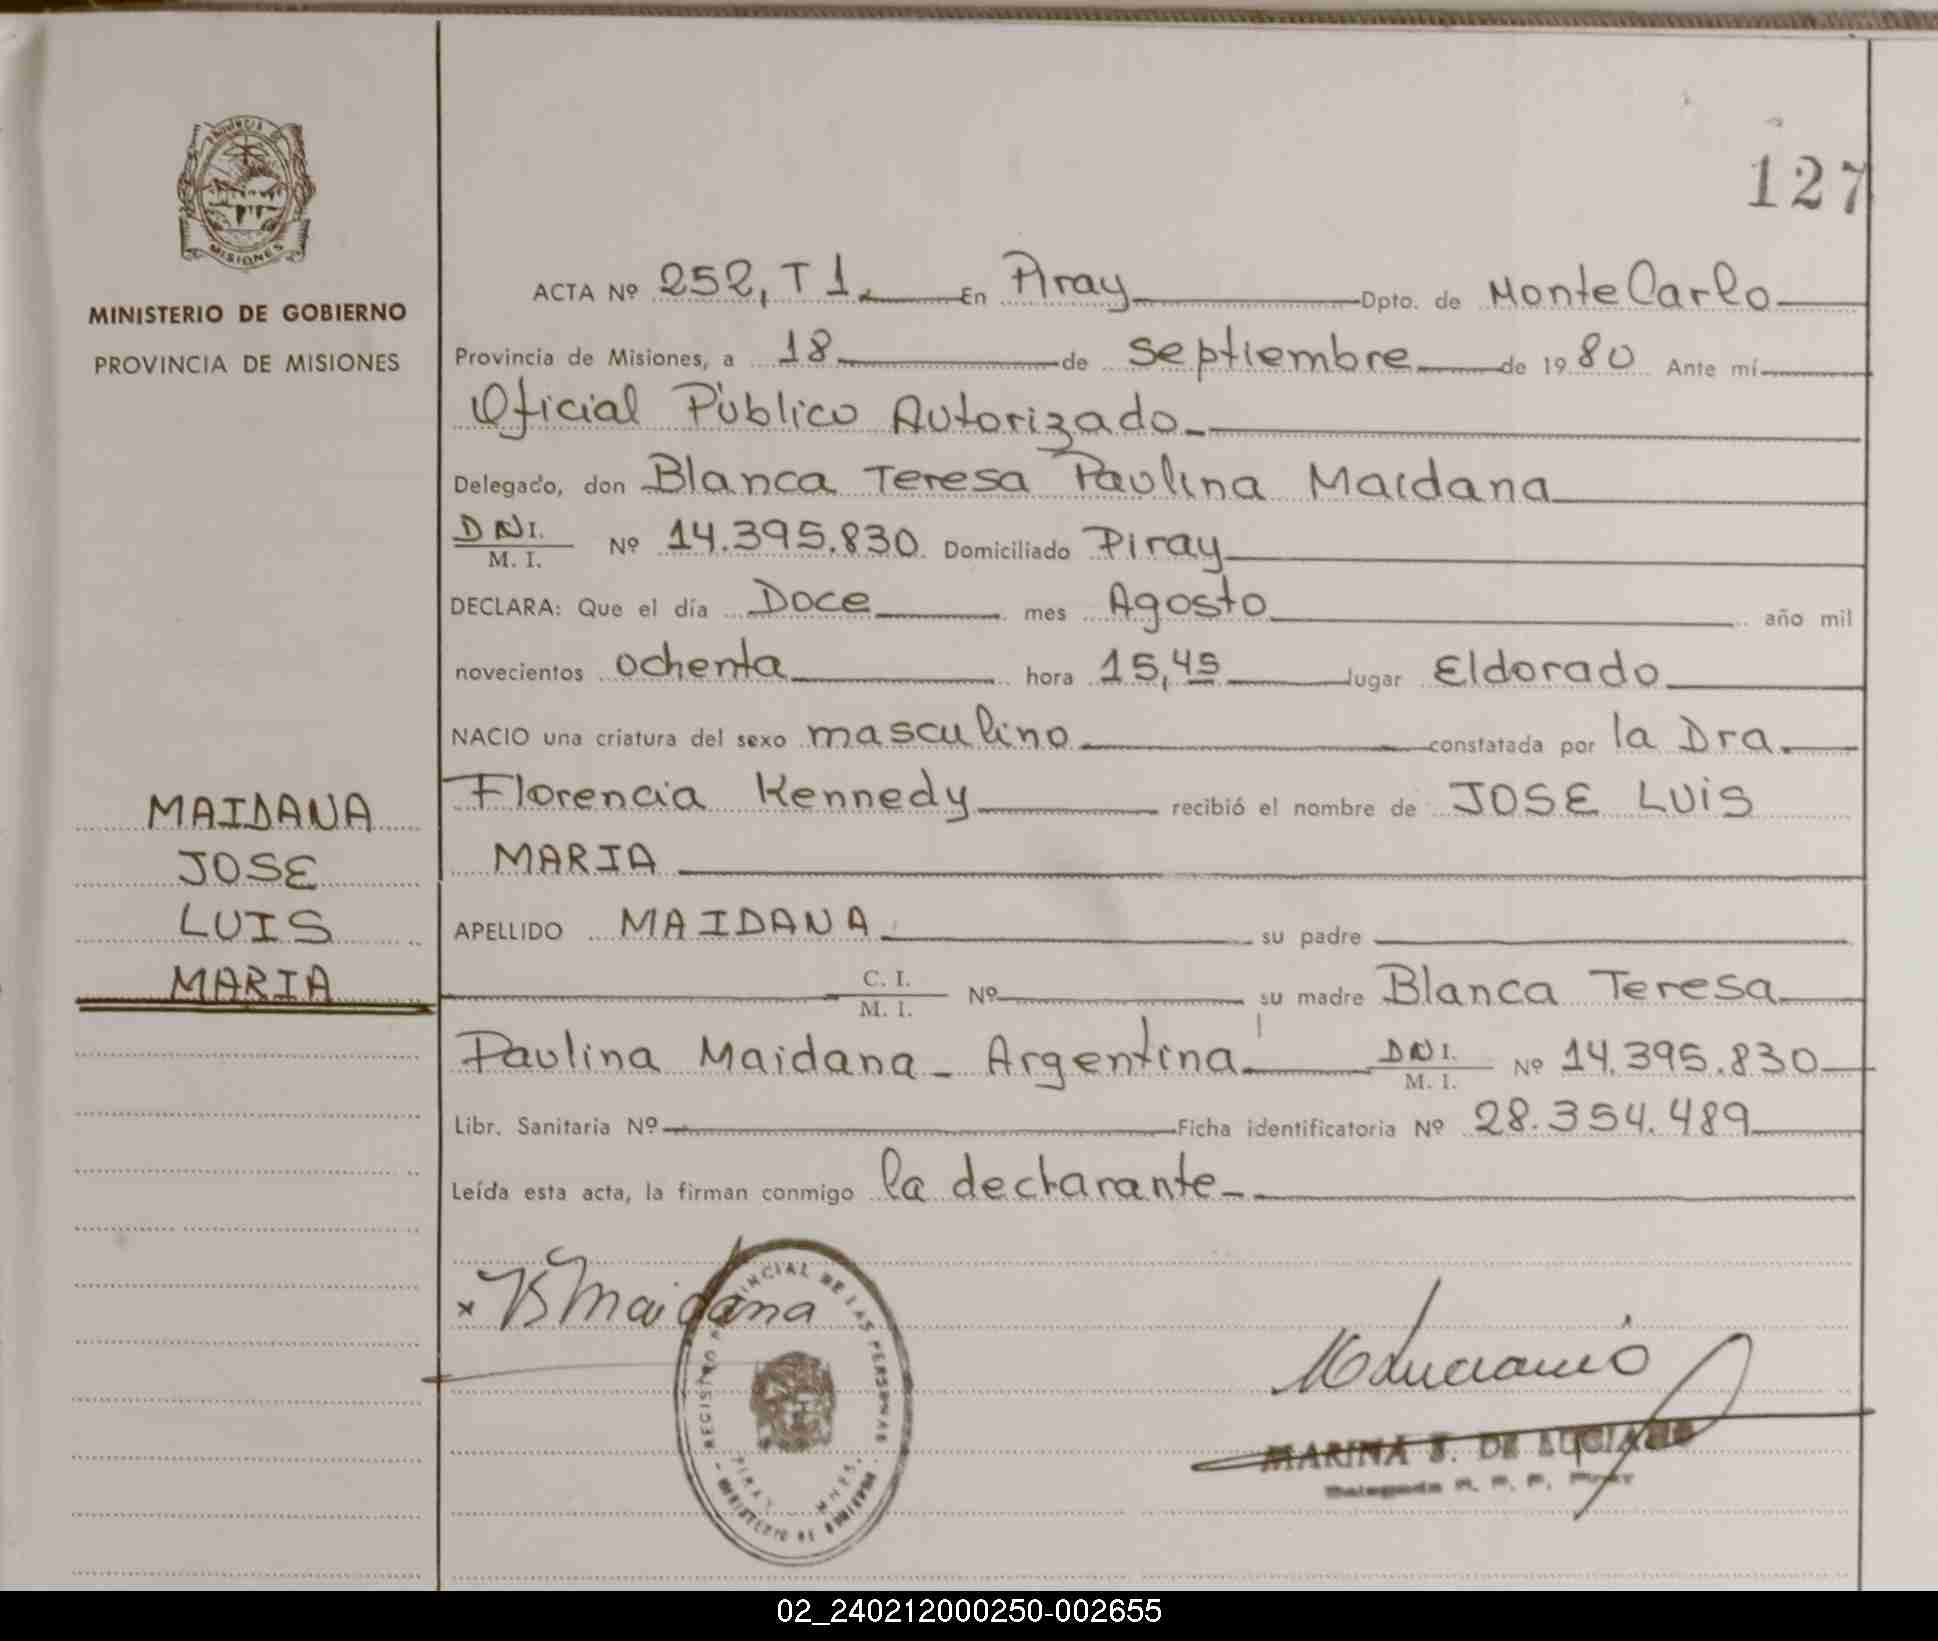 127
PROVINCIA DE
MISIONES
MINISTERIO DE GOBIERNO
PROVINCIA DE MISIONES
ACTA Nº 252, T 1. En Piray Dpto. de MonteCarlo
Provincia de Misiones, a 18 de septiembre de 1980 Ante mí
Oficial Público Autorizado
Delegado, don Blanca Teresa Paulina Maidana
DNI.
M. I. Nº 14.395.830. Domiciliado Piray
DECLARA: Que el día Doce mes Agosto año mil
novecientos ochenta hora 15,45 lugar Eldorado
NACIO una criatura del sexo masculino constatada por la Dra.
Florencia Kennedy recibió el nombre de JOSE LUIS
MARIA
MAIDANA
JOSE
LUIS
MARIA
APELLIDO MAIDANA su padre
C. I.
M. I. Nº su madre Blanca Teresa
Paulina Maidana - Argentina DNI.
M. I. Nº 14.395.830
Libr. Sanitaria Nº Ficha identificatoria Nº 28.354.489
Leída esta acta, la firman conmigo la declarante
x BMaidana
REGISTRO PROVINCIAL DE LAS PERSONAS
PIRAY MNES.
MINISTERIO DE GOBIERNO
MLuciano
MARINA S. DE LUCIANO
Delegada R. P. P. Piray
02_240212000250-002655